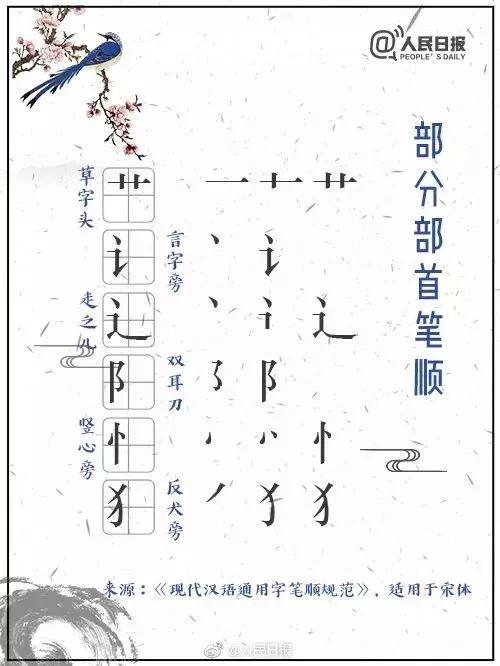 @人民日报
PEOPLE'S DAILY
部分部首笔顺
草字头 艹 一 十 艹
讠 言字旁 丶 讠
走之儿 辶 丶 辶
阝 双耳刀 ㇌ 阝
竖心旁 忄 丶 丷 忄
犭 反犬旁 丿 犭 犭
来源：《现代汉语通用字笔顺规范》，适用于宋体
@人民日报